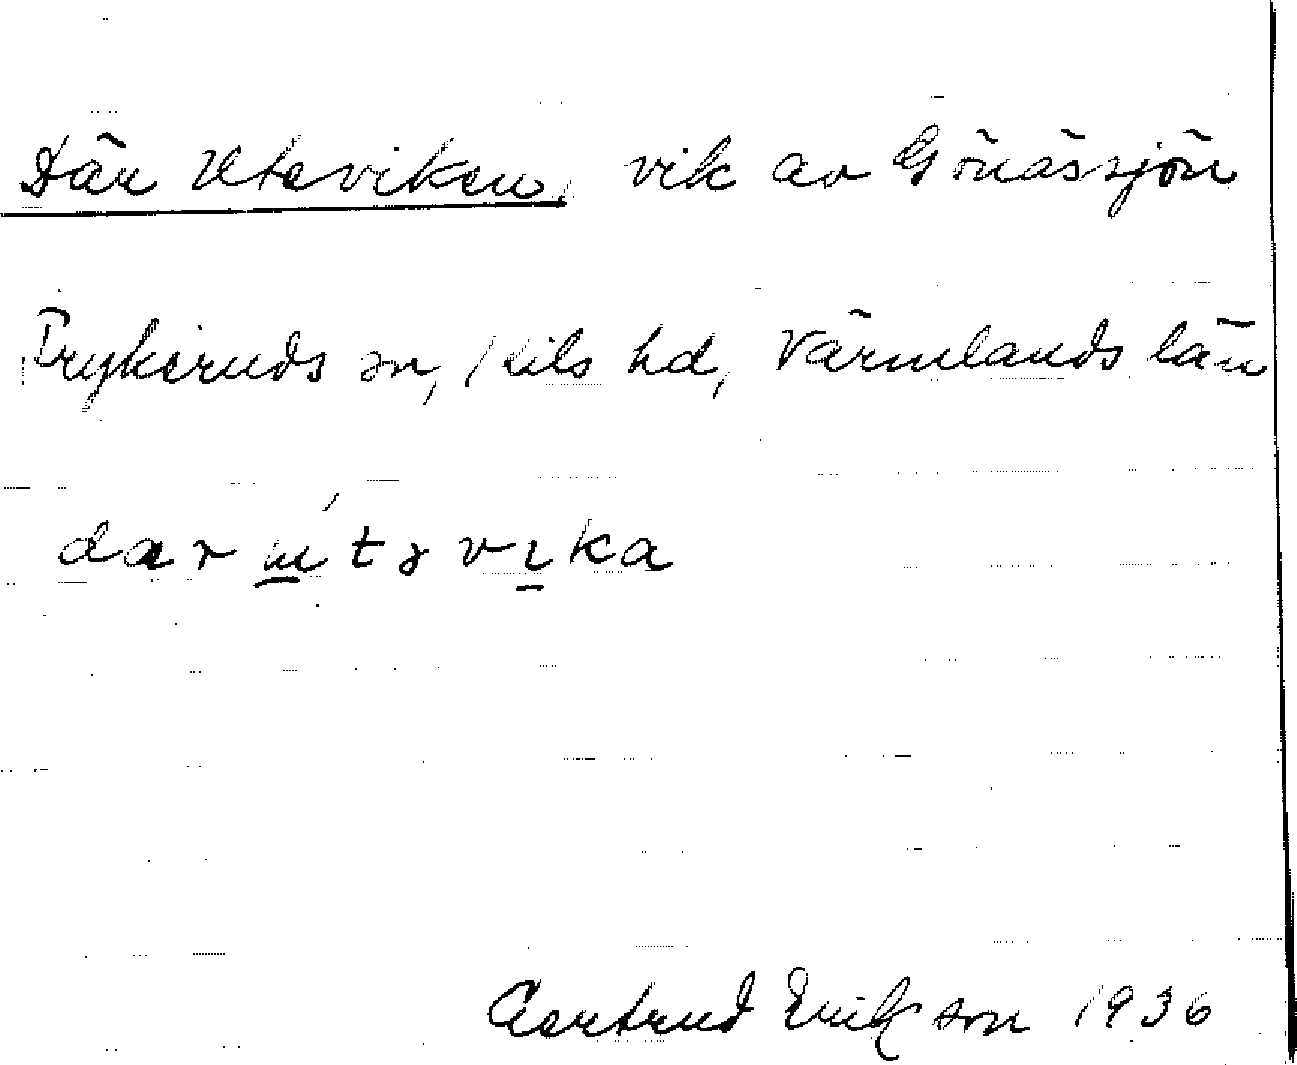 Där Uteviken, vik av Gönässjön
Frykeruds sn, Kils hd, Värmlands län
dar útəvika
Gertrud Erikson 1936